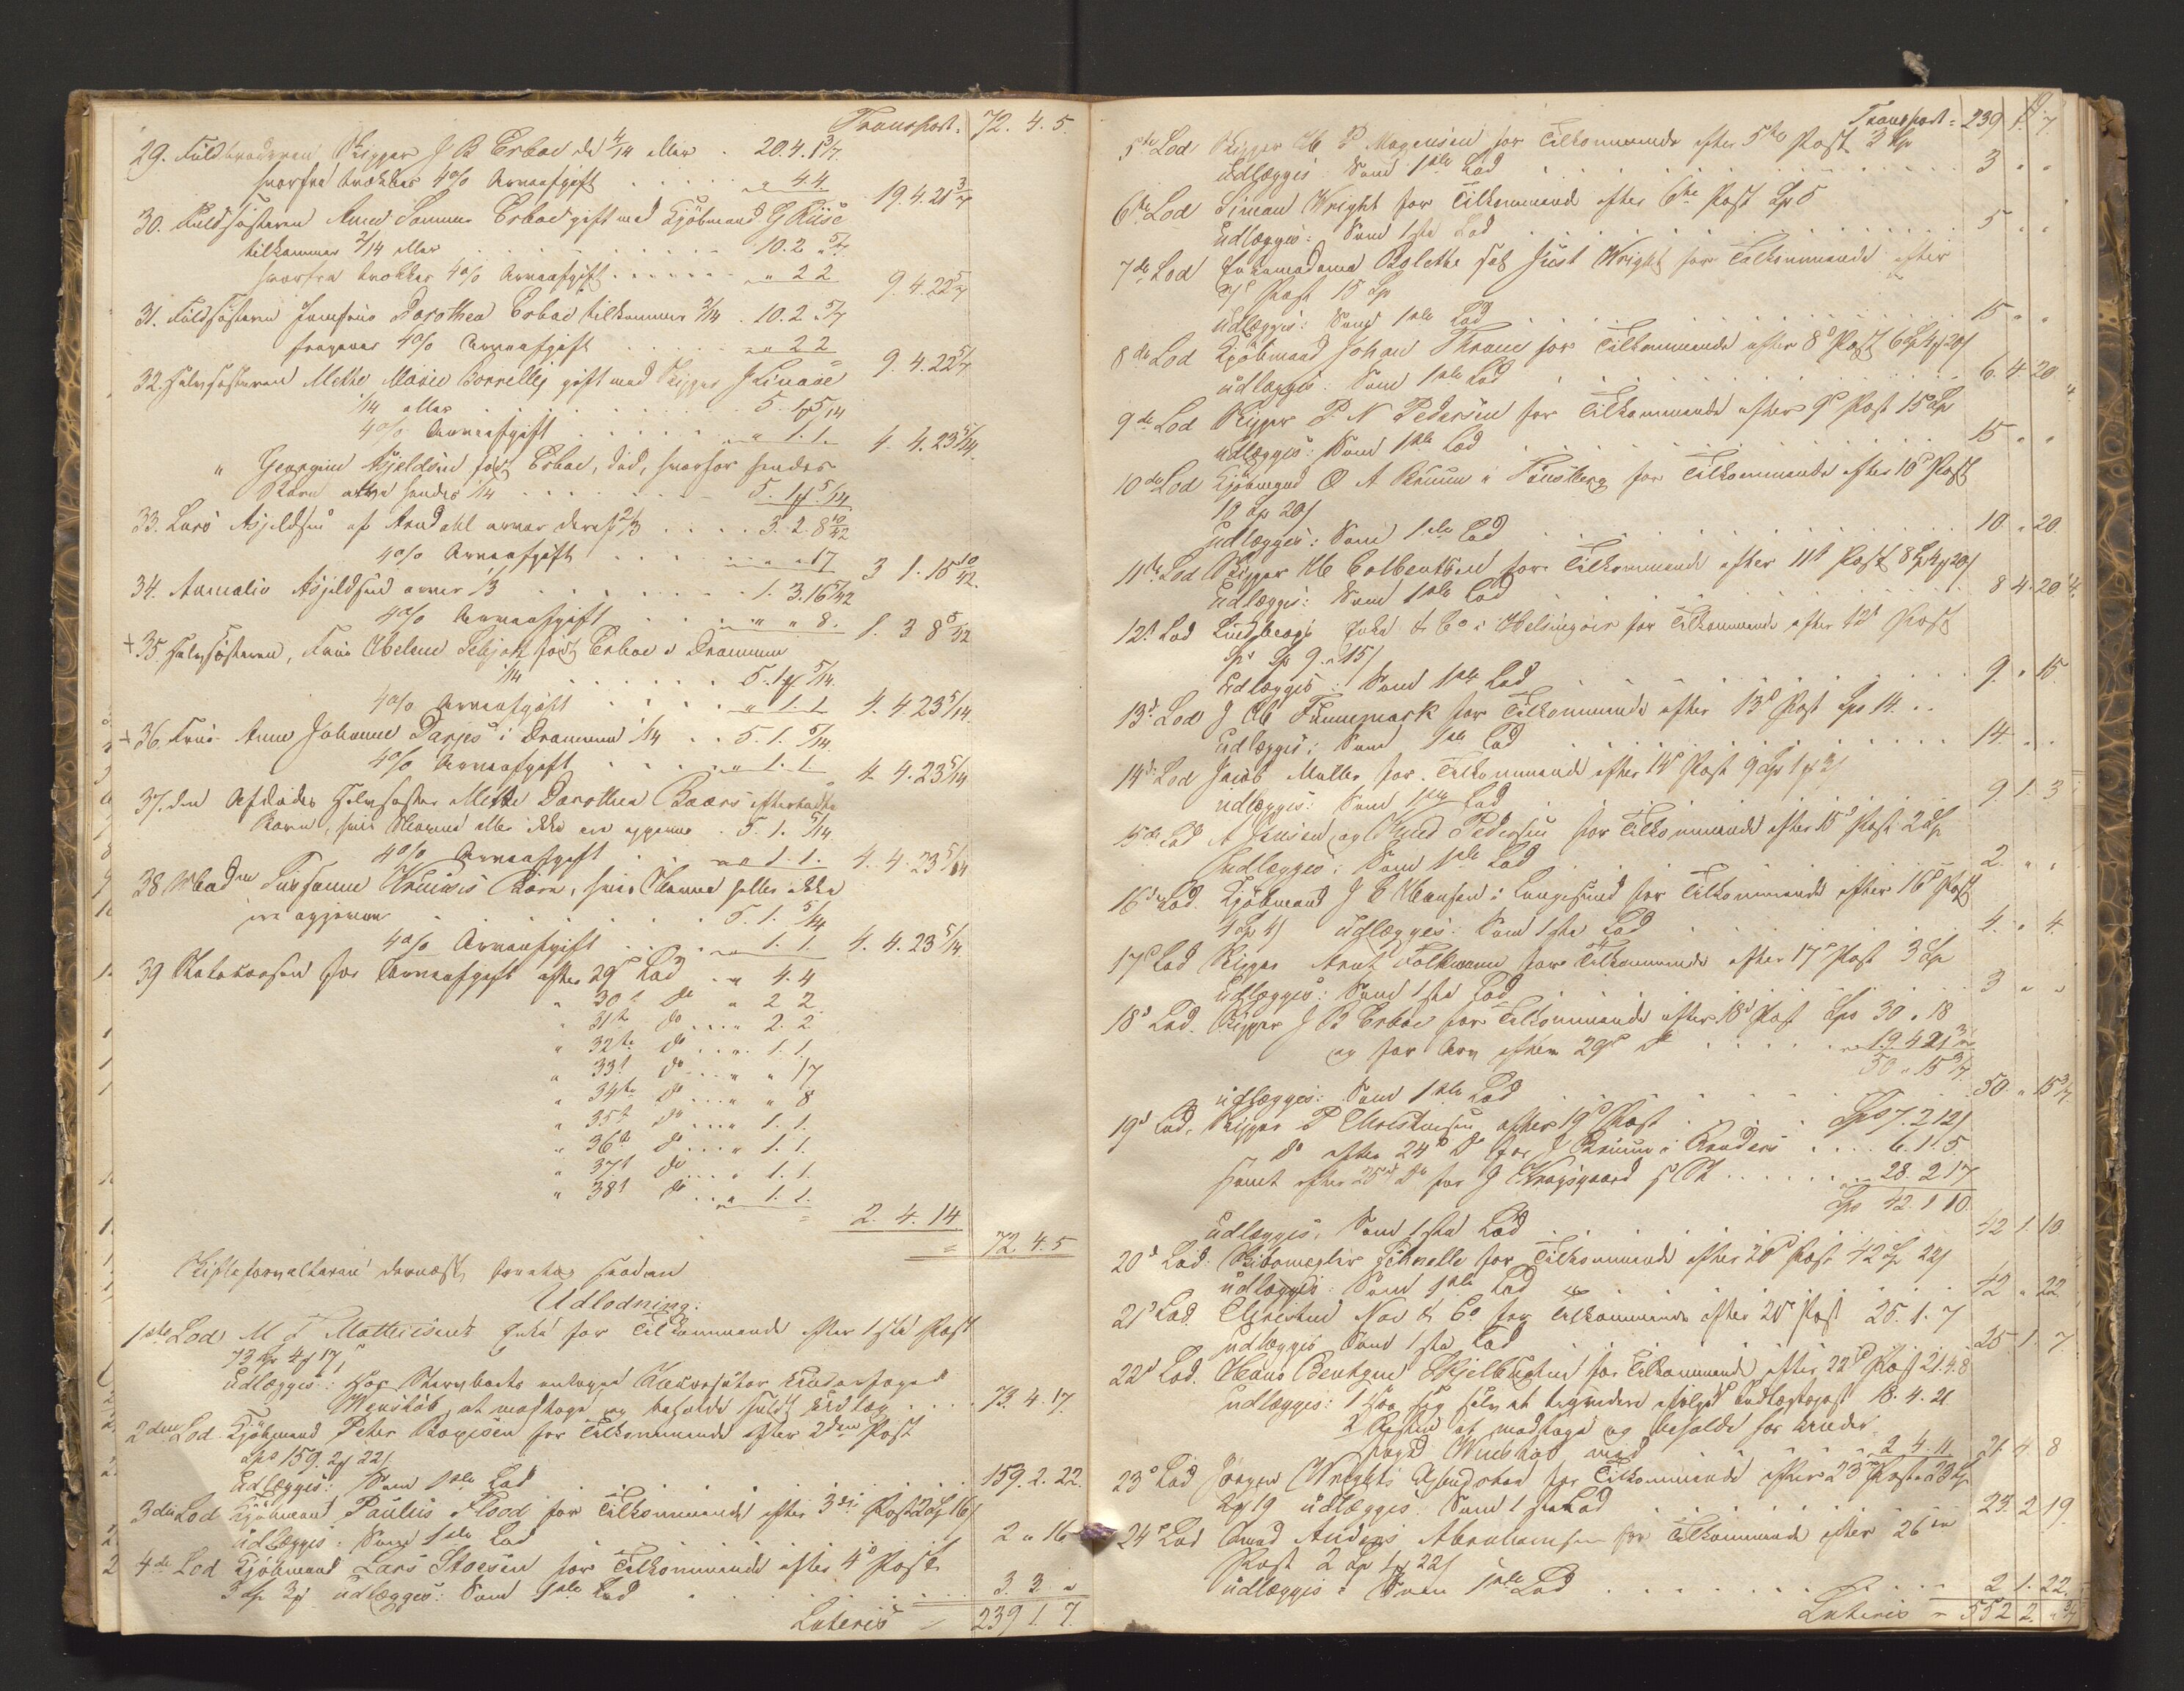 Transport. 72. 4. 5.
29. Fuldbroderen Skipper J B Erboe de 4/14 eller . 20. 4. 1 3/7.
hvorfra trækkes 4% Arveafgift . . . . „ 4. 4. 19. 4. 21 3/7
30. Fuldsøsteren Anne Erboe gift med Kjöbmand G Riise
tilkommer 2/14 eller . . . . 10. 2 „ 5/7
hvorfra trækkes 4% Arveafgift . . . . „ 2 2 9. 4. 22 5/7
31. Fuldsøsteren Jomfrue Dorothea Erboe tilkommer 2/14 . 10. 2 „ 5/7
fragaaer 4% Arveafgift . . . „ 2 2 9. 4. 22 5/7
32. Halvsøsteren Mette Marie gift med Skipper
1/14 eller . . . . 5. 1 „ 5/14
4% Arveafgift . . . . „ 1. 1. 4. 4. 23 5/14.
„ Georgine Kjeldsen født Erboe, død, hvorfor hendes
Børn arve hendes 1/14 . . . . 5. 1 „ 5/14
33. Lars Kjeldsen af Arendahl arver deraf 2/3 . . . 3. 2. 8 10/42
4% Arveafgift . . . „ „ 17 3 1. 15 10/42.
34. Amalie Kjeldsen arver 1/3 . . . . 1. 3. 16 5/42
4% Arveafgift . . . „ „ 8. 1. 3 8 5/42
+ 35. Halvsøsteren, Frue født Erboe i Drammen
1/14 . . . . 5. 1 „ 5/14.
4% Arveafgift . . . „ 1. 1 4. 4. 23 5/14.
+ 36. Frue Anne Johanne Darjes i Drammen 1/14 . . 5. 1. 5/14.
4% Arveafgift . . . „ 1. 1 4. 4. 23 5/14
37. den Afdødes Halvsøster Mette Dorothea Baars efterladte
Børn, hvis Navne eller ikke ere opgivne . 5. 1. 5/14
4% Arveafgift . . „ 1. 1. 4. 4. 23 5/14
38 Madm Susanne Børn, hvis Navne heller ikke
ere opgivne . . . . 5. 1. 5/14
4% Arveafgift . . . „ 1. 1. 4. 4. 23 5/14.
39 Statskassen for Arveafgift efter 29de Lod . . „ 4. 4
„ 30t do „ 2 2
„ 31te do . . . „ 2. 2
„ 32te do . . . „ 1. 1.
„ 33t do . . . „ „ 17
„ 34te do . . . „ „ 8
„ 35t do . . . „ 1. 1.
„ 36te do . . . „ 1. 1.
„ 37t do . . . „ 1. 1.
„ 38t do . . . „ 1. 1.
= 2. 4. 14
= 72. 4. 5
Skifteforvalteren dernæst foretog saadan
Udlodning:
1ste Lod M F Mathiesens Enke for Tilkommende efter 1ste Post
73 Sp 4 17
Udlægges: Hos Skarvboets antagne Underfoged
Wenshob at modtage og befalde fuldt Udlæg . . . . 73. 4. 17
2den Lod Kjöbmand Peter Boyesen for Tilkommende efter 2den Post
Sp 159. 2 22
Udlægges: Som 1ste Lod . . . . 159. 2. 22.
3die Lod Kjöbmand Paulus Flood for Tilkommende efter 3die Post 2 Sp 16
udlægges: Som 1ste Lod 2 „ 16
4de Lod Kjöbmand Lars Stoesen for Tilkommende efter 4de Post
3 Sp 3 udlægges: Som 1ste Lod . . . . 3. 3. „
Lateris 239 1. 7.
Transport = 239 1. 7.
5te Lod Skipper P Mogensen for Tilkommende efter 5te Post 3 Sp
udlægges Som 1ste Lod . . . . 3 „ „
6te Lod Simeon Wright for Tilkommende efter 6te Post Sp 5
udlægges: Som 1ste Lod . . . . 5 „ „
7de Lod Enkemadame Bolethe sal Just Wright for Tilkommende efter
7de Post 15 Sp
udlægges: Som 1ste Lod . . . . 15 „ „
8de Lod Kjöbmand Johan Thrane for Tilkommende efter 8de Post 6 Sp 4 20
udlægges: Som 1ste Lod . . . . 6. 4. 20.
9de Lod Skipper P. N Pedersen for Tilkommende efter 9de Post 15 Sp
udlægges: Som 1ste Lod . . . . 15 „ „
10de Lod Kjöbmand O A Bruun i Tønsberg for Tilkommende efter 10de Post
10 Sp 20
udlægges: Som 1ste Lod . . . . 10. „ 20.
11te Lod Skipper for Tilkommende efter 11te Post 8 Sp 4 20
Udlægges: Som 1ste Lod . . . . 8 4. 20.
12t Lod Enke & Co i Helsingøer for Tilkommende efter 12t Post
Sp 9. „ 15
Udlægges: Som 1ste Lod . . . . 9 „ 15.
13de Lod J Funnemark for Tilkommende efter 13de Post Sp 14. . .
Udlægges: Som 1ste Lod . . . . 14. „ „
14de Lod Jacob Møller for Tilkommende efter 14de Post 9 Sp 1 3
udlægges: Som 1ste Lod . . . . 9. 1. 3
15de Lod A Jensen og Knud Pedersen for Tilkommende efter 15de Post 2 Sp
Udlægges: Som 1ste Lod . . . . 2 „ „
16de Lod. Kjöbmand J C Hansen i Langesund for Tilkommende efter 16de Post
4 Sp 4 udlægges: Som 1ste Lod . . . . 4. „ 4.
17de Lod Skipper Arent Folkmann for Tilkommende efter 17de Post 3 Sp
Udlægges: Som 1ste Lod . . . . 3 „ „
18de Lod. Skipper J B Erboe for Tilkommende efter 18de Post Sp 30 „ 18
og for Arv efter 29de do . . . . 19 4 21 3/7
50 „ 15 3/7.
udlægges: Som 1ste Lod . . . . 50 „ 15 3/7
19de Lod. Skipper P Christensen efter 19de Post . . . . Sp 7. 2 12
do efter 24de do for J Bruun i Randers . . . . 6. 1. 5
samt efter 25de do for J Krogsgaard . . . . 28. 2 17
Sp 42. 1 10.
udlægges, Som 1ste Lod . . . . 42 1. 10
20de Lod. Skibsmegler Schnelle for Tilkommende efter 20de Post 42 Sp 22
udlægges: Som 1ste Lod . . . . 42 „ 22.
21de Lod. Christen Moe & Co for Tilkommende efter 21de Post 25. 1. 7
udlægges Som 1ste Lod . . . . 25 1. 7.
22de Lod. Hans Bentzen for Tilkommende efter 22de Post 21. 4. 8
udlægges: 1 Hos sig selv 18. 4. 21
2 Resten at modtage og befalde hos Under-
foged Wenshob med . . . . 2. 4. 11 21. 4. 8
23de Lod Jørgen Wrights for Tilkommende efter 23de Post 23 Sp
2 19 udlægges: Som 1ste Lod . . . . 23. 2 19.
24de Lod Anders Abrahamsen for Tilkommende efter 26de
Post 2 Sp 1 22
udlægges: Som 1ste Lod . . . . 2 1. 22.
Lateris = 552 2. „ 3/7